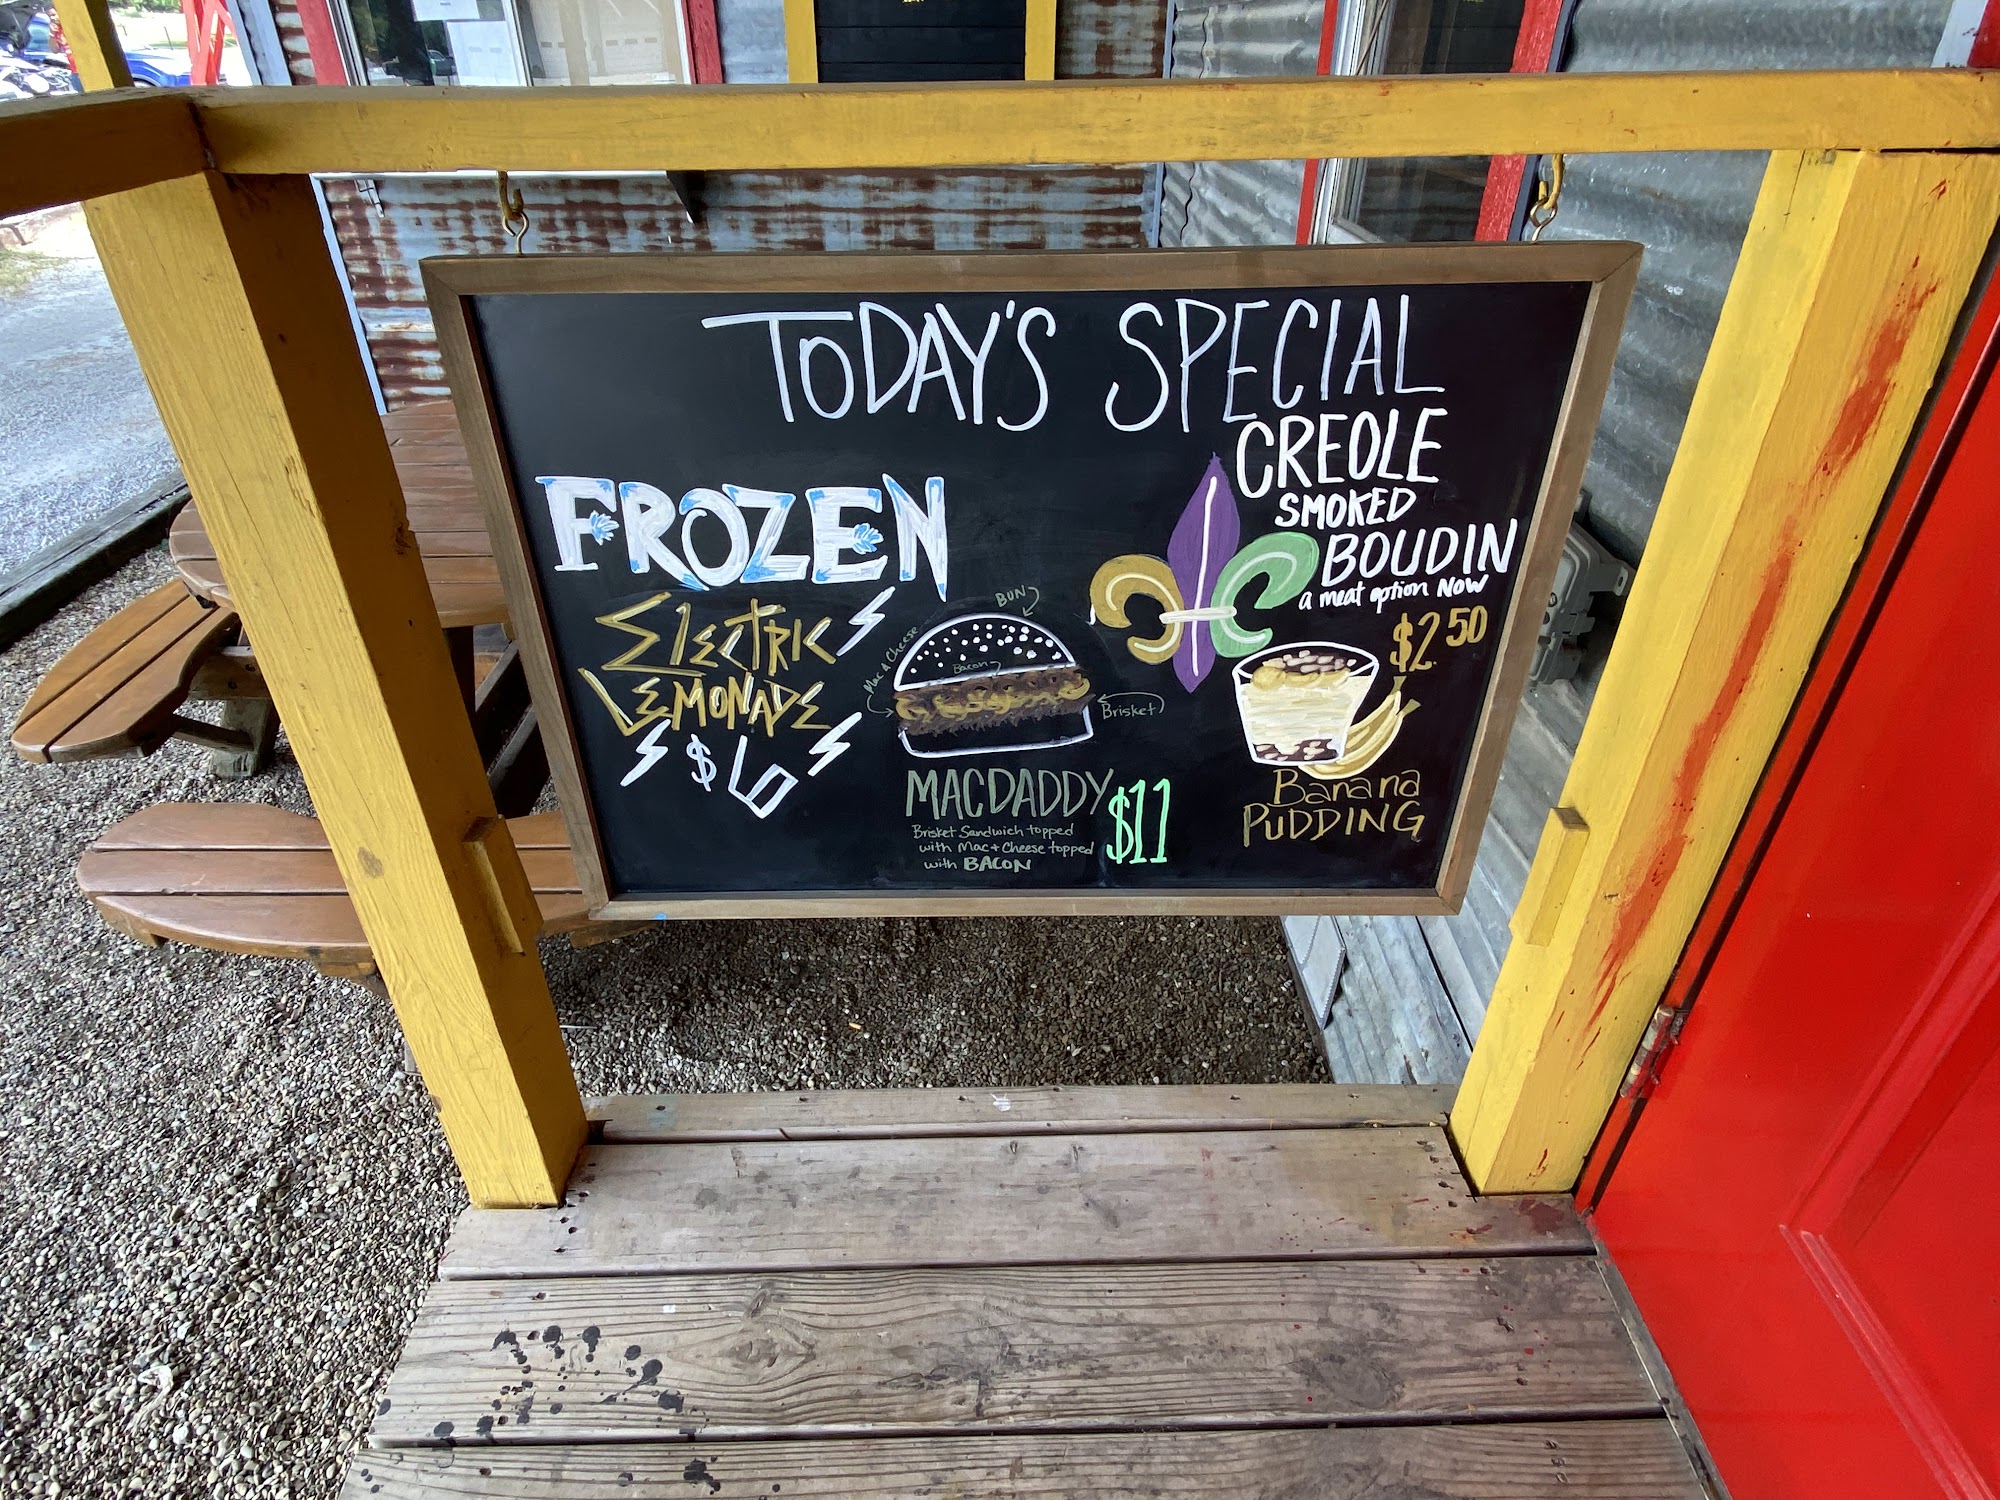 TODAY'S SPECIAL
FROZEN
ELECTRIC
LEMONADE
$6
BUN
Mac & Cheese
Bacon
Brisket
MACDADDY
$11
Brisket Sandwich topped
with Mac + Cheese topped
with BACON
CREOLE
SMOKED
BOUDIN
a meat option NOW
$2.50
Banana
PUDDING